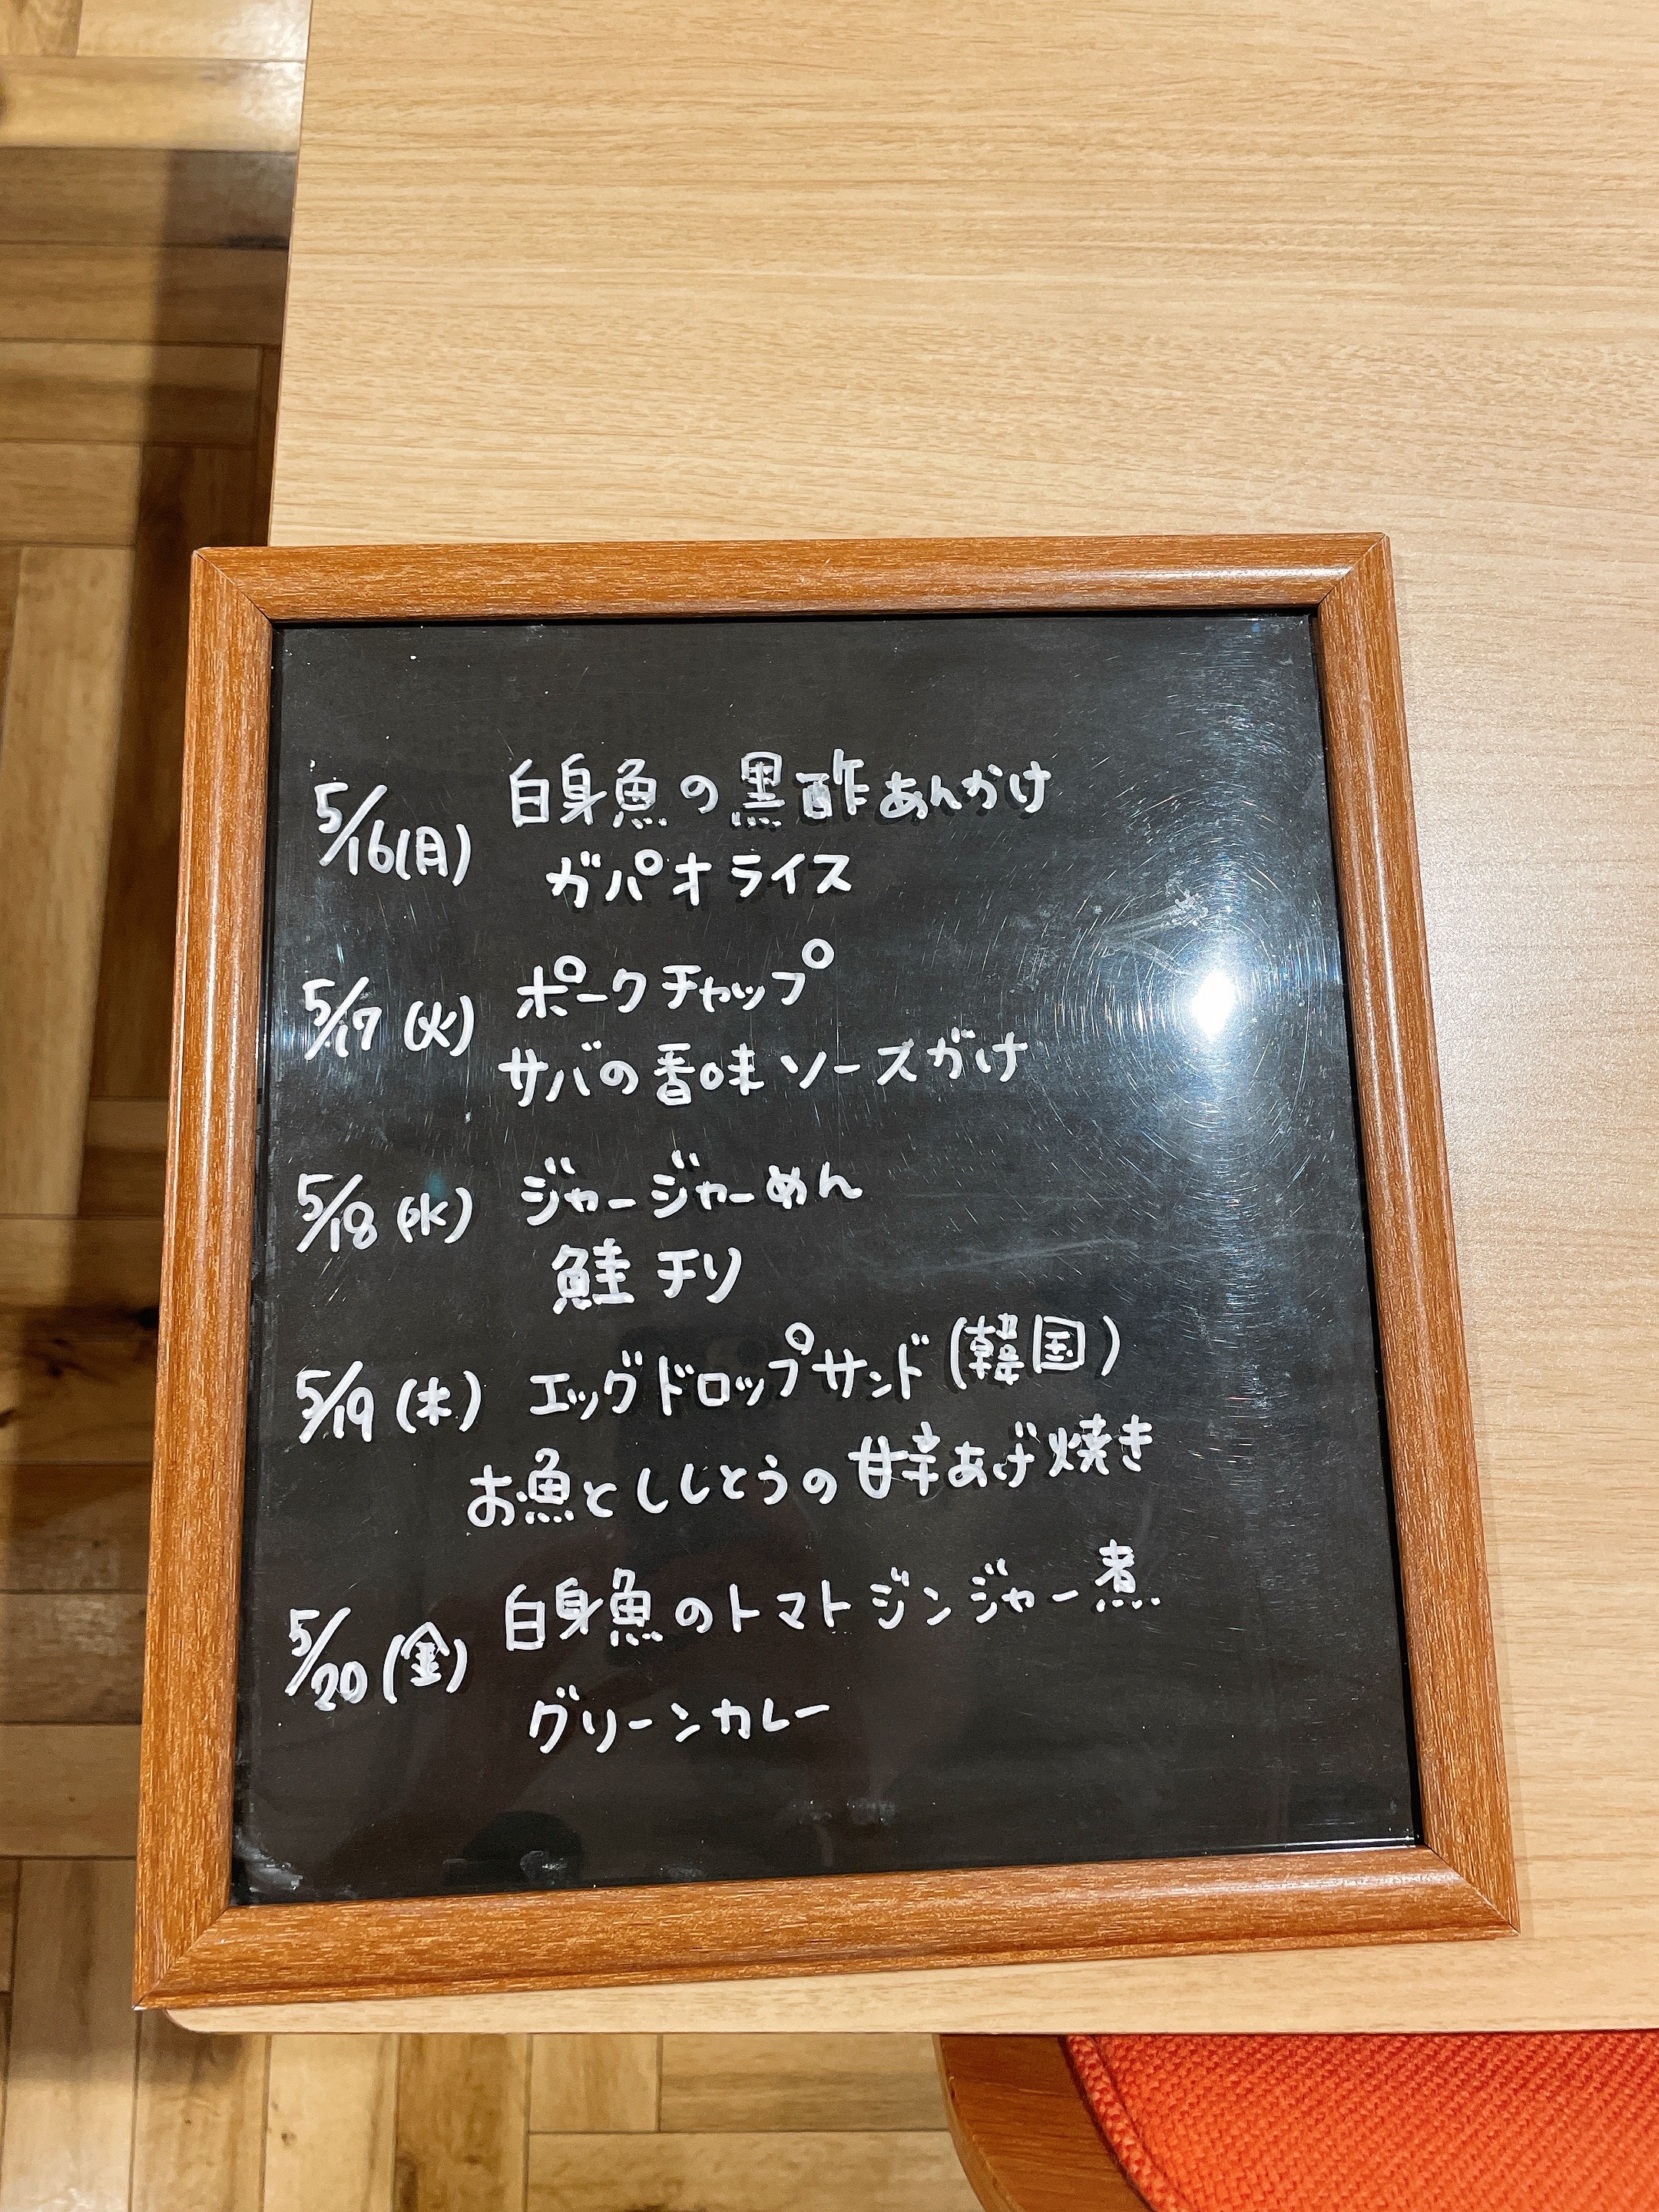 5/16(月) 白身魚の黒酢あんかけ
ガパオライス
5/17(火) ポークチャップ
サバの香味ソースがけ
5/18(水) ジャージャーめん
鮭チリ
5/19(木) エッグドロップサンド(韓国)
お魚とししとうの甘辛あげ焼き
5/20(金) 白身魚のトマトジンジャー煮
グリーンカレー